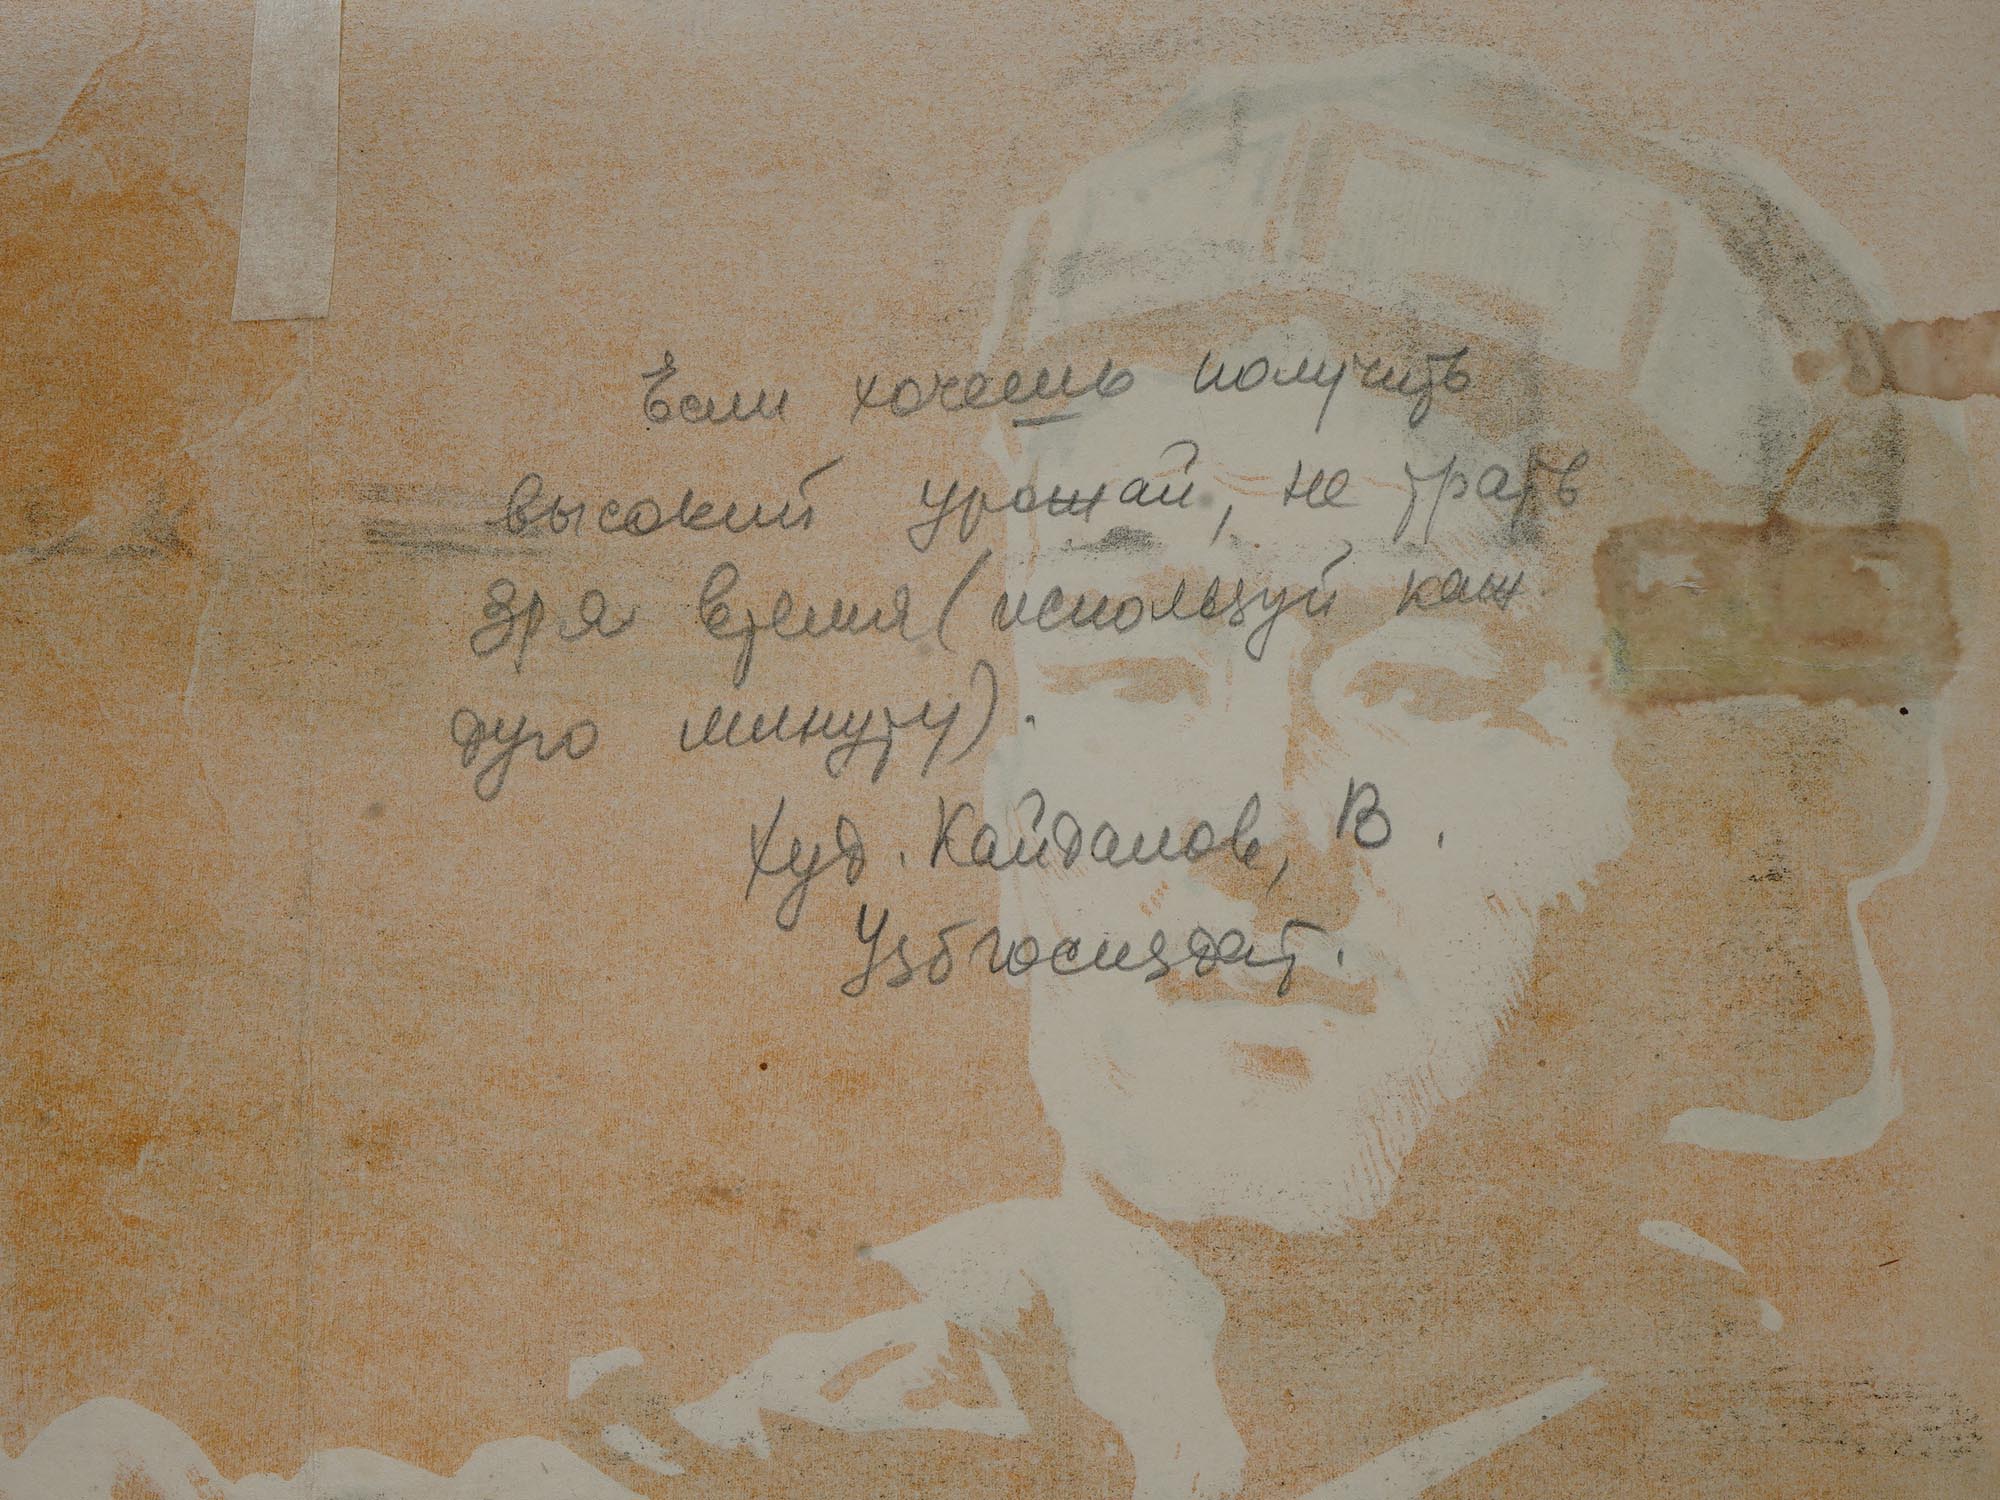 Если хочешь получить
высокий урожай, не трать
зря время (используй каж
дую минуту).
Худ. Кайдалов, В.
Узбгосиздат.